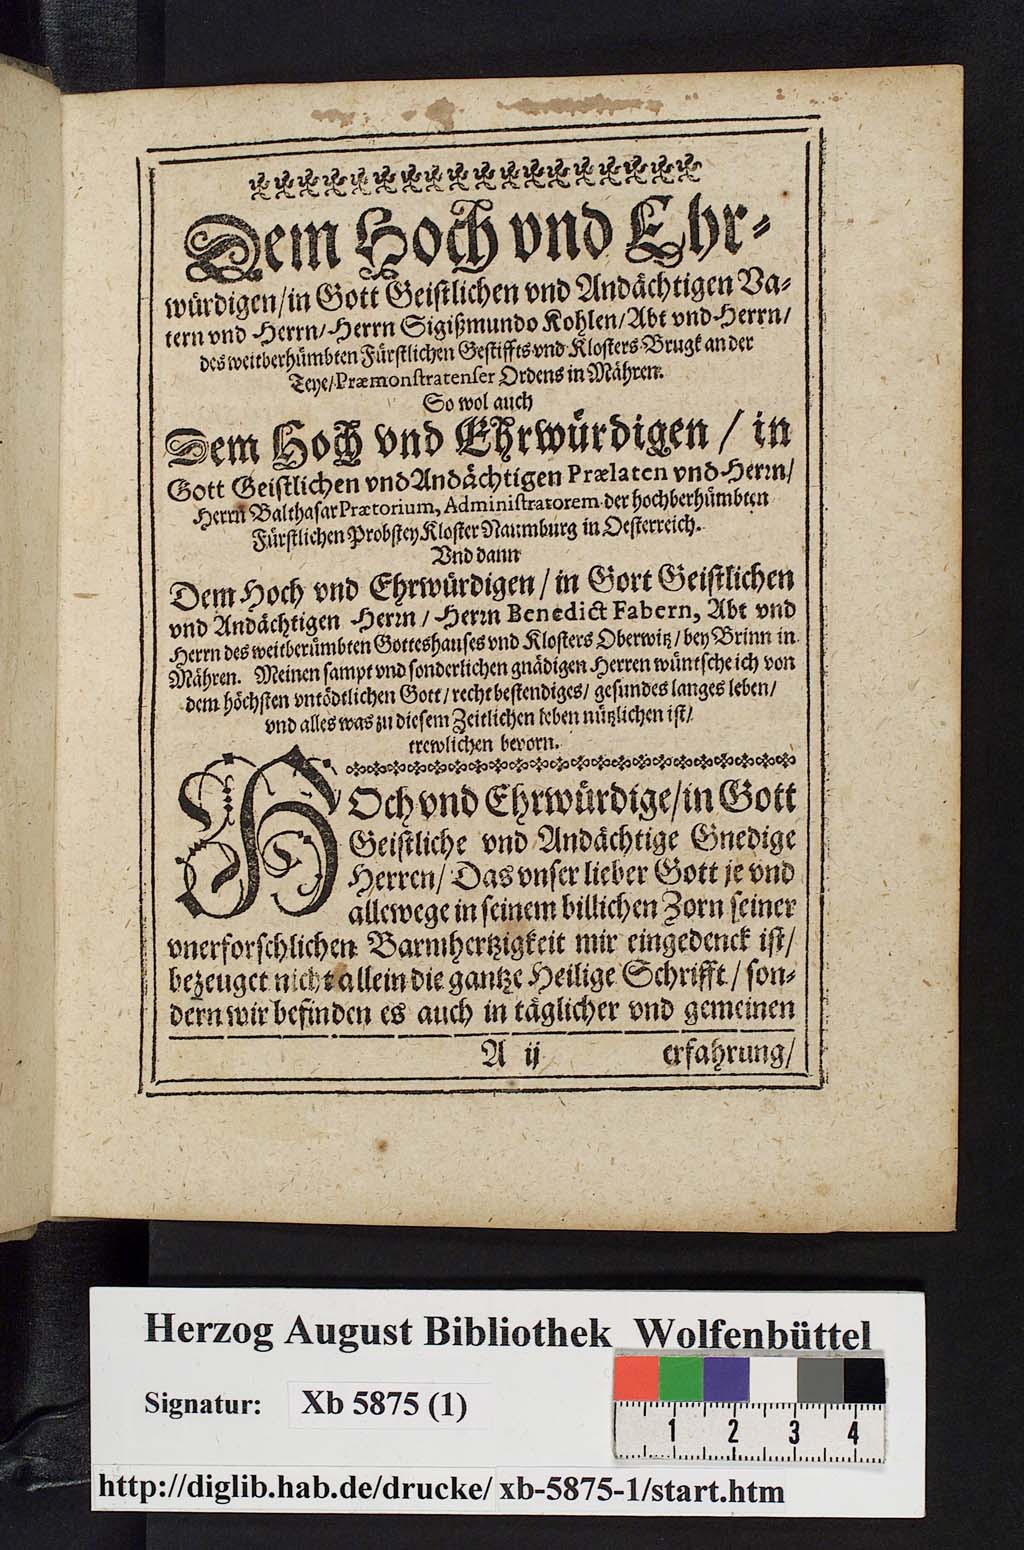 Dem Hoch vnd Ehr-
würdigen/in Gott Geistlichen vnd Andächtigen Va-
tern vnd Herrn/Herrn Sigißmundo Kohlen/Abt vnd Herrn/
des weitberhümbten Fürstlichen Gestiffts vnd Klosters Brugk an der
Teye/Præmonstratenser Ordens in Mähren.
So wol auch
Dem Hoch vnd Ehrwürdigen / in
Gott Geistlichen vnd Andächtigen Prælaten vnd Herrn/
Herrn Balthasar Prætorium, Administratorem der hochberhümbten
Fürstlichen Probstey Kloster Naumburg in Oesterreich.
Vnd dann
Dem Hoch vnd Ehrwürdigen / in Gort Geistlichen
vnd Andächtigen Herrn / Herrn Benedict Fabern, Abt vnd
Herrn des weitberümbten Gotteshauses vnd Klosters Oberwitz / bey Brinn in
Mähren. Meinen sampt vnd sonderlichen gnädigen Herren wüntsche ich von
dem höchsten vntödtlichen Gott / recht bestendiges / gesundes langes leben /
vnd alles was zu diesem Zeitlichen leben nützlichen ist/
trewlichen bevorn.
HOch vnd Ehrwürdige/in Gott
Geistliche vnd Andächtige Gnedige
Herren/ Das vnser lieber Gott je vnd
allewege in seinem billichen Zorn seiner
vnerforschlichen Barmhertzigkeit mir eingedenck ist/
bezeuget nicht allein die gantze Heilige Schrifft / son-
dern wir befinden es auch in täglicher vnd gemeinen
A ij erfahrung/
Herzog August Bibliothek Wolfenbüttel
Signatur: Xb 5875 (1)
1 2 3 4
http://diglib.hab.de/drucke/ xb-5875-1/start.htm